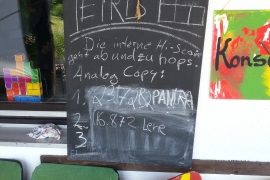 Die interne Hi-Score
geht ab und zu hops.
Analog Copy:
1.
PANTRA
2. 16.872 Lene
3
Kons